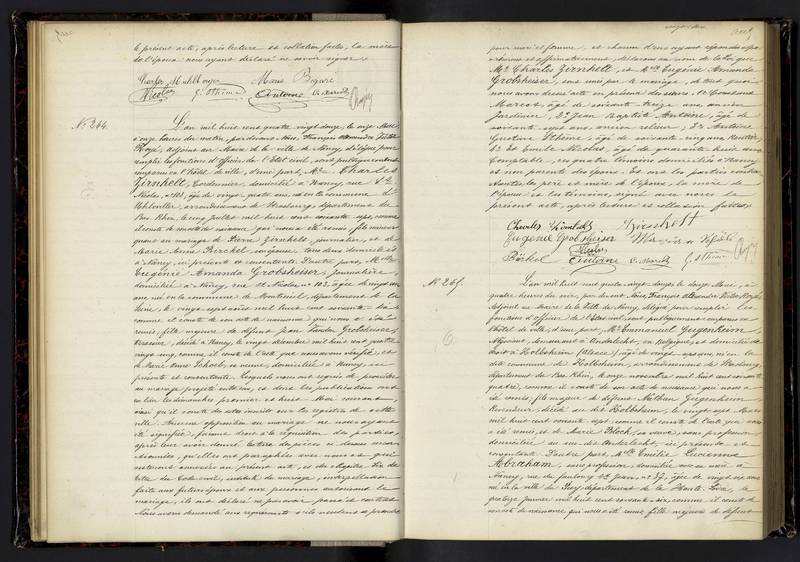 le présent acte, après lecture et collation faites, la mère
de l'épouse nous ayant déclaré ne savoir signer.
Charles Muhlberger Marie Bizard
Nicolas G. Othème Antoine C. Marcot
N° 264. L'an mil huit cent quatre vingt douze, le onze Mai
à onze heures du matin, par devant Nous, François Alexandre Victor
adjoint au Maire de la ville de Nancy, délégué pour
remplir les fonctions d'officier de l'état civil, sont publiquement
comparus en l'hôtel de ville, d'une part, Mr. Charles
Zirnhelt, Cordonnier, domicilié à Nancy, rue St.
Nicolas, âgé de vingt quatre ans, né en la commune d'
Uhlwiller, arrondissement de Strasbourg, département du
Bas Rhin, le cinq juillet mil huit cent soixante sept, comme
il conste de son acte de naissance qui nous a été remis, fils mineur
quant au mariage de Pierre Zirnhelt, journalier, et de
Marie Anne Birckel son épouse, tous deux domiciliés
à Nancy, ici présents et consentants. D'autre part, Melle
Eugénie Amanda Grobsheiser, journalière,
domiciliée à Nancy, rue St. Nicolas, n° 102, âgée de vingt un
ans, née en la commune de Montreuil, département de la
Seine, le vingt sept août mil huit cent soixante dix
comme il conste de son acte de naissance qui nous a été
remis, fille majeure de défunt Jean Xavier Grobsheiser,
Brossier, décédé à Nancy, le vingt décembre mil huit cent quatre
vingt cinq, comme il conste de l'acte que nous avons vérifié, et
de Marie Anne Schoeb, sa veuve, domiciliée à Nancy, ici
présente et consentante. Lesquels nous ont requis de procéder
au mariage projeté entre eux, et dont les publications ont
eu lieu les dimanches premier et huit Mai courant,
ainsi qu'il conste des actes inscrits sur les registres de cette
ville. Aucune opposition au mariage ne nous ayant
été signifiée, faisant droit à la réquisition des parties,
après leur avoir donné lecture des pièces ci dessus men-
tionnées, qu'elles ont paraphées avec nous et qui
resteront annexées au présent acte, et du chapitre six du
titre du Code civil, intitulé du mariage, interpellation
faite aux futurs époux et aux personnes autorisant le
mariage, ils ont déclaré ne pas avoir passé de contrat.
Nous avons demandé aux requérants s'ils veulent se prendre
pour mari et femme, et chacun d'eux ayant répondu sépa-
rément et affirmativement, déclarons au nom de la loi que
Mr. Charles Zirnhelt, et Melle Eugénie Amanda
Grobsheiser, sont unis par le mariage, de tout quoi
nous avons dressé acte en présence des sieurs, 1° Constant
Marcot, âgé de soixante treize ans, ancien
Jardinier, 2° Jean Baptiste Antoine, âgé de
soixante sept ans, ancien relieur, 3° Antoine
Gustave Othème, âgé de soixante cinq ans, Rentier,
4° et Emile Nicolas, âgé de quarante huit ans
Comptable, ces quatre témoins domiciliés à Nancy
et non parents des époux. Et ont les parties contrac-
tantes, les père et mère de l'époux, la mère de
l'épouse et les témoins, signé avec nous le
présent acte, après lecture et collation faites.
Charles Zirnhelt Zirnhelt
Eugénie Grobsheiser
Birkel Nicolas Antoine C. Marcot G. Othème
N° 265. L'an mil huit cent quatre vingt douze, le douze Mai, à
quatre heures du soir, par devant Nous, François Alexandre Victor
Adjoint au Maire de la Ville de Nancy, délégué pour remplir les
fonctions d'officier de l'état civil, sont publiquement comparus en
l'hôtel de ville, d'une part, Mr. Emmanuel Gugenheim,
Négociant, demeurant à Anderlecht, en Belgique, et domicilié de
droit à Kolbsheim (Alsace), âgé de vingt sept ans, né en la
dite commune de Kolbsheim, arrondissement de Strasbourg,
département du Bas Rhin, le onze novembre mil huit cent soixante
quatre, comme il conste de son acte de naissance qui nous a
été remis, fils majeur de défunt Nathan Gugenheim
Revendeur, décédé au dit Kolbsheim, le vingt sept Mars
mil huit cent soixante sept, comme il conste de l'acte qui nous
a été remis, et de Marie Bloch, sa veuve, sans profession,
domiciliée au sus dit Anderlecht, ici présente et
consentante. D'autre part, Melle Emélie Lucienne
Abraham, sans profession, domiciliée avec sa mère à
Nancy, rue du faubourg St. Jean, n° 39, âgée de vingt six ans,
née en la ville du Puy, département de la Haute Loire, le
quatorze janvier mil huit cent soixante six, comme il conste de
son acte de naissance qui nous a été remis, fille majeure de défunt